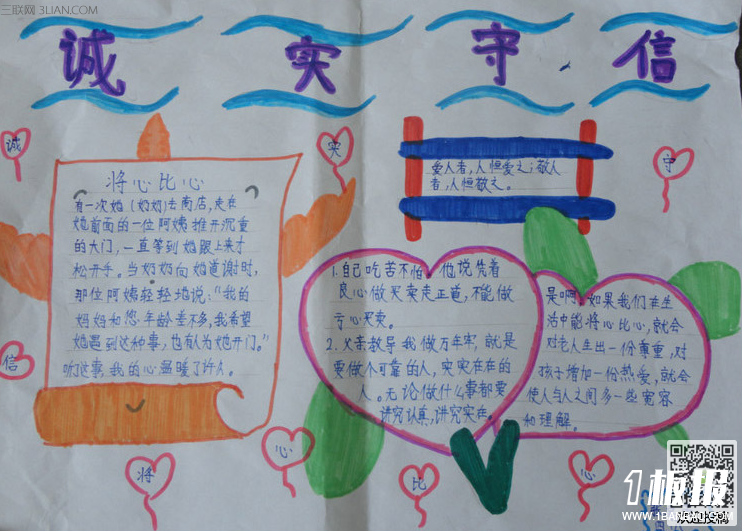 三联网 3LIAN.COM
诚 实 守 信
诚
实
守
信
将心比心
有一次她(奶奶)去商店,走在
她前面的一位阿姨推开沉重
的大门,一直等到她跟上来才
松开手。当奶奶向她道谢时,
那位阿姨轻轻地说:“我的
妈妈和您年龄差不多,我希望
她遇到这种事,也有人为她开门。”
听这事,我的心温暖了许久。
爱人者,人恒爱之;敬人
者,人恒敬之。
1.自己吃苦不怕。他说凭着
良心做买卖走正道,不能做
亏心买卖。
2.父亲教导我做万年牢,就是
要做个可靠的人,实实在在的
人。无论做什么事都要
讲究认真,讲究实在。
是啊,如果我们在生
活中能将心比心,就会
对老人生出一份尊重,对
孩子增加一份热爱,就会
使人与人之间多一些宽容
和理解。
将
心
比
心
1板报
WWW.1BANBAO.COM